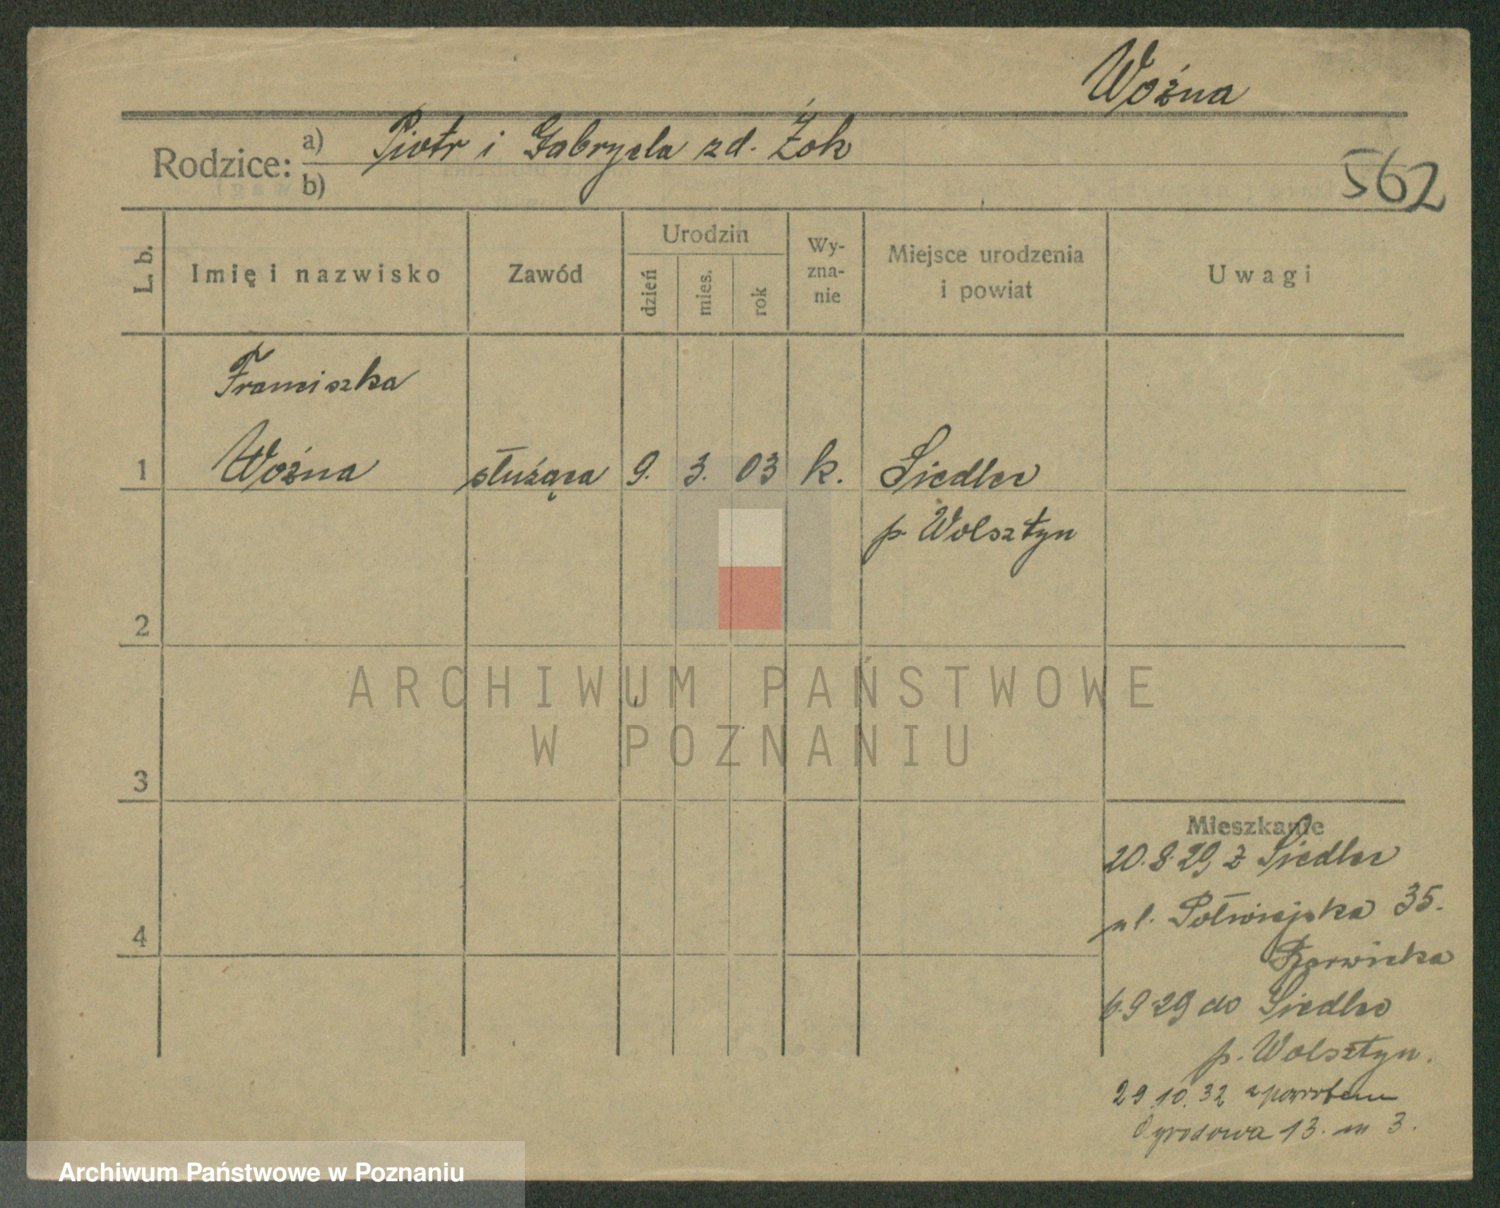 Woźna
Rodzice: a) Piotr i Gabryela zd. Żok
b)
562
L. b.
Imię i nazwisko
Zawód
Urodzin
dzień
mies.
rok
Wy-
zna-
nie
Miejsce urodzenia
i powiat
Uwagi
Franciszka
1 Woźna służąca 9. 3. 03 k. Siedlec
p. Wolsztyn
2
ARCHIWUM PAŃSTWOWE
W POZNANIU
3
Mieszkanie
20.8.29 z Siedlec
ul. Półwiejska 35.
4
6.9.29 do Siedlec
p. Wolsztyn.
29.10.32 z powrotem
Ogrodowa 13. m 3.
Archiwum Państwowe w Poznaniu